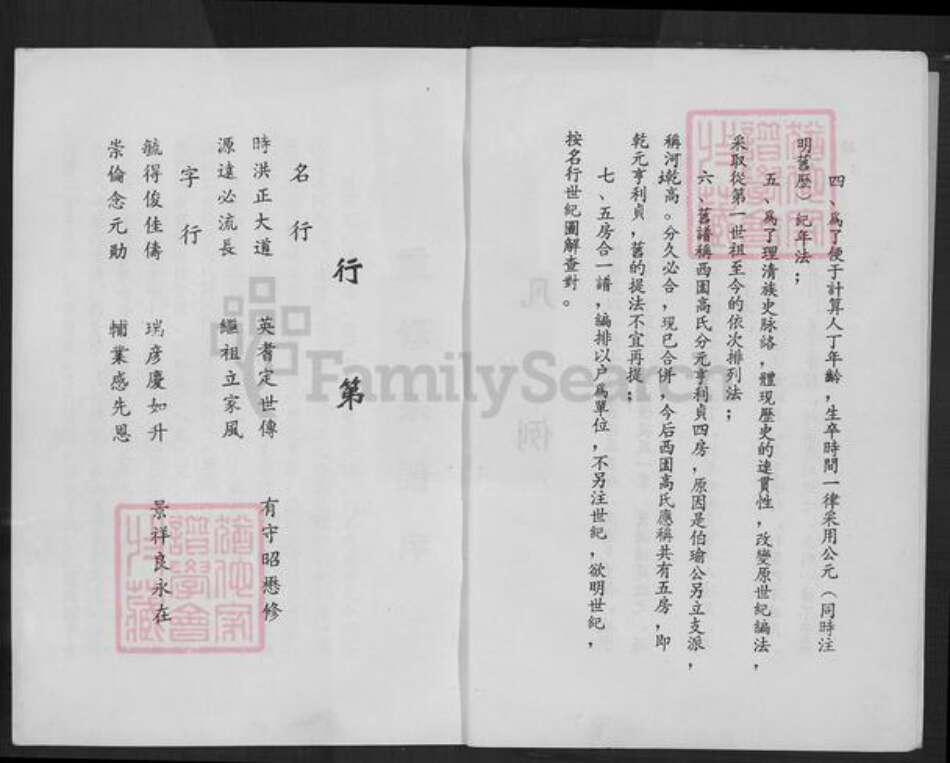 四、爲了便于計算人丁年齡，生卒時間一律采用公元（同時注
明舊歷）紀年法；
五、爲了理清族史脉絡，體現歷史的連貫性，改變原世紀編法，
采取從第一世祖至今的依次排列法；
六、舊譜稱西圍高氏分元亨利貞四房，原因是伯瑜公另立支派，
稱河乾高。分久必合，現已合併，今后西圍高氏應稱共有五房，即
乾元亨利貞，舊的提法不宜再提；
七、五房合一譜，編排以户爲單位，不另注世紀，欲明世紀，
按名行世紀圖解查對。
行第
名行
時洪正大道 英耆定世傳 有守昭懋修
源遠必流長 繼祖立家風
字行
毓得俊佳儔 瑞彦慶如升 景祥良永在
崇倫念元勛 輔業感先恩
FamilySearch